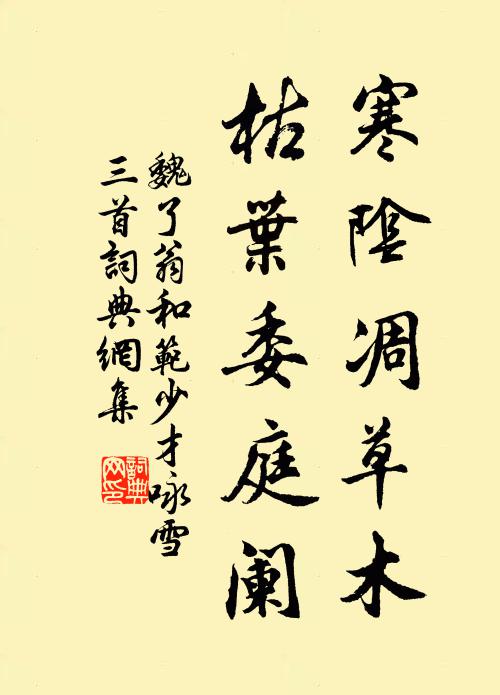 寒陰凋草木
枯葉委庭闌
魏了翁和範少才咏雪
三首詞典網集
詞典網印